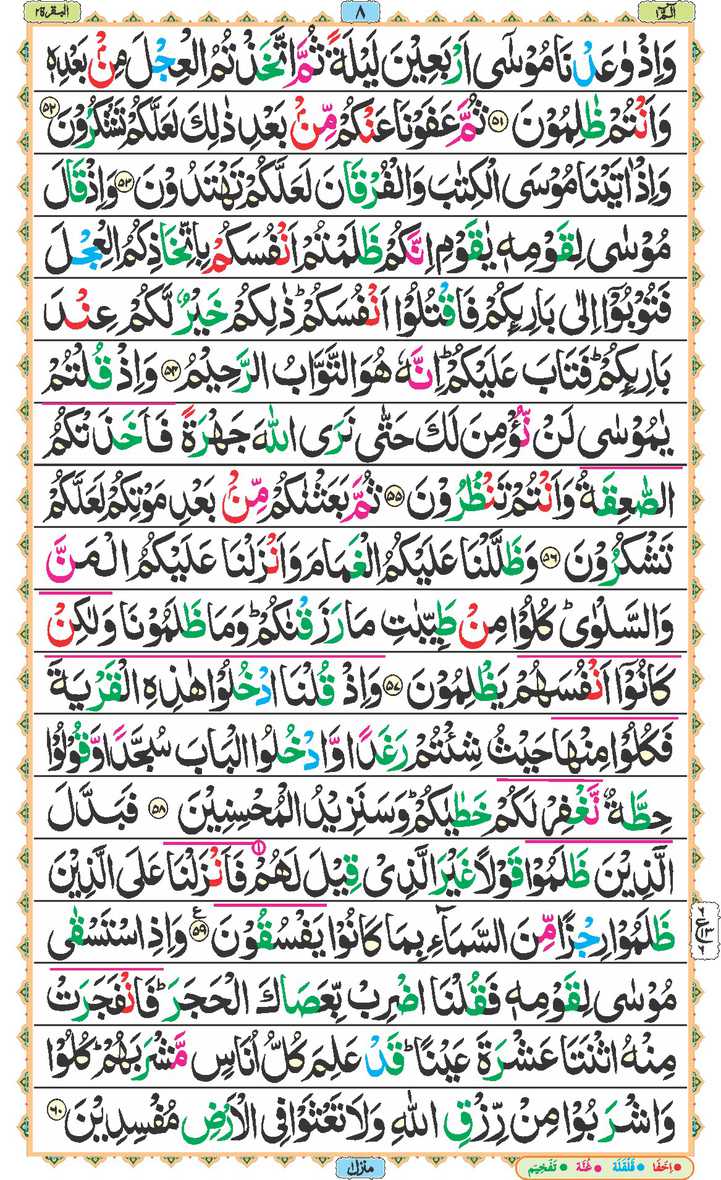 الٓمّٓ ١
٨
البقرة ٢
وَاِذْ وٰعَدْنَا مُوْسٰۤى اَرْبَعِيْنَ لَيْلَةً ثُمَّ اتَّخَذْتُمُ الْعِجْلَ مِنْۢ بَعْدِهٖ
وَاَنْتُمْ ظٰلِمُوْنَ ﴿۵۱﴾ ثُمَّ عَفَوْنَا عَنْكُمْ مِّنْۢ بَعْدِ ذٰلِكَ لَعَلَّكُمْ تَشْكُرُوْنَ ﴿۵۲﴾
وَاِذْ اٰتَيْنَا مُوْسَى الْكِتٰبَ وَالْفُرْقَانَ لَعَلَّكُمْ تَهْتَدُوْنَ ﴿۵۳﴾ وَاِذْ قَالَ
مُوْسٰى لِقَوْمِهٖ يٰقَوْمِ اِنَّكُمْ ظَلَمْتُمْ اَنْفُسَكُمْ بِاتِّخَاذِكُمُ الْعِجْلَ
فَتُوْبُوْۤا اِلٰى بَارِىِٕكُمْ فَاقْتُلُوْۤا اَنْفُسَكُمْ ؕ ذٰلِكُمْ خَيْرٌ لَّكُمْ عِنْدَ
بَارِىِٕكُمْ ؕ فَتَابَ عَلَيْكُمْ ؕ اِنَّهٗ هُوَ التَّوَّابُ الرَّحِيْمُ ﴿۵۴﴾ وَاِذْ قُلْتُمْ
يٰمُوْسٰى لَنْ نُّؤْمِنَ لَكَ حَتّٰى نَرَى اللّٰهَ جَهْرَةً فَاَخَذَتْكُمُ
الصّٰعِقَةُ وَاَنْتُمْ تَنْظُرُوْنَ ﴿۵۵﴾ ثُمَّ بَعَثْنٰكُمْ مِّنْۢ بَعْدِ مَوْتِكُمْ لَعَلَّكُمْ
تَشْكُرُوْنَ ﴿۵۶﴾ وَظَلَّلْنَا عَلَيْكُمُ الْغَمَامَ وَاَنْزَلْنَا عَلَيْكُمُ الْمَنَّ
وَالسَّلْوٰى ؕ كُلُوْا مِنْ طَيِّبٰتِ مَا رَزَقْنٰكُمْ ؕ وَمَا ظَلَمُوْنَا وَلٰكِنْ
كَانُوْۤا اَنْفُسَهُمْ يَظْلِمُوْنَ ﴿۵۷﴾ وَاِذْ قُلْنَا ادْخُلُوْا هٰذِهِ الْقَرْيَةَ
فَكُلُوْا مِنْهَا حَيْثُ شِئْتُمْ رَغَدًا وَّادْخُلُوا الْبَابَ سُجَّدًا وَّقُوْلُوْا
حِطَّةٌ نَّغْفِرْ لَكُمْ خَطٰيٰكُمْ ؕ وَسَنَزِيْدُ الْمُحْسِنِيْنَ ﴿۵۸﴾ فَبَدَّلَ
الَّذِيْنَ ظَلَمُوْا قَوْلًا غَيْرَ الَّذِىْ قِيْلَ لَهُمْ فَاَنْزَلْنَا عَلَى الَّذِيْنَ
ظَلَمُوْا رِجْزًا مِّنَ السَّمَآءِ بِمَا كَانُوْا يَفْسُقُوْنَ ﴿۵۹﴾ ع وَاِذِ اسْتَسْقٰى
مُوْسٰى لِقَوْمِهٖ فَقُلْنَا اضْرِبْ بِّعَصَاكَ الْحَجَرَ ؕ فَانْفَجَرَتْ
مِنْهُ اثْنَتَا عَشْرَةَ عَيْنًا ؕ قَدْ عَلِمَ كُلُّ اُنَاسٍ مَّشْرَبَهُمْ ؕ كُلُوْا
وَاشْرَبُوْا مِنْ رِّزْقِ اللّٰهِ وَلَا تَعْثَوْا فِى الْاَرْضِ مُفْسِدِيْنَ ﴿۶۰﴾
منزل
اِخفَا قَلْقَلَه غُنَّه تَفْخِيْم